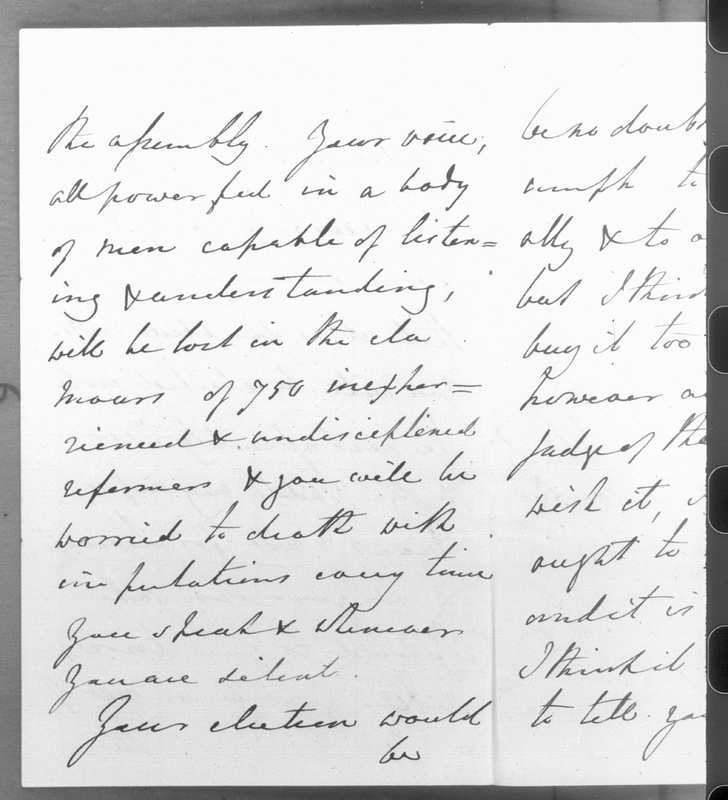 the assembly. Your voice,
all powerful in a body
of men capable of listen=
ing & understanding,
will be lost in the cla
mours of 750 inexper=
rienced & undisciplined
reformers & you will be
worried to death with
imputations every time
you speak & whenever
you are silent.
Your election would
be
be no doubt
umph to
ally & to a
but I think
buy it too
however a
judge of the
wish it,
ought to
and it is
I think it
to tell you